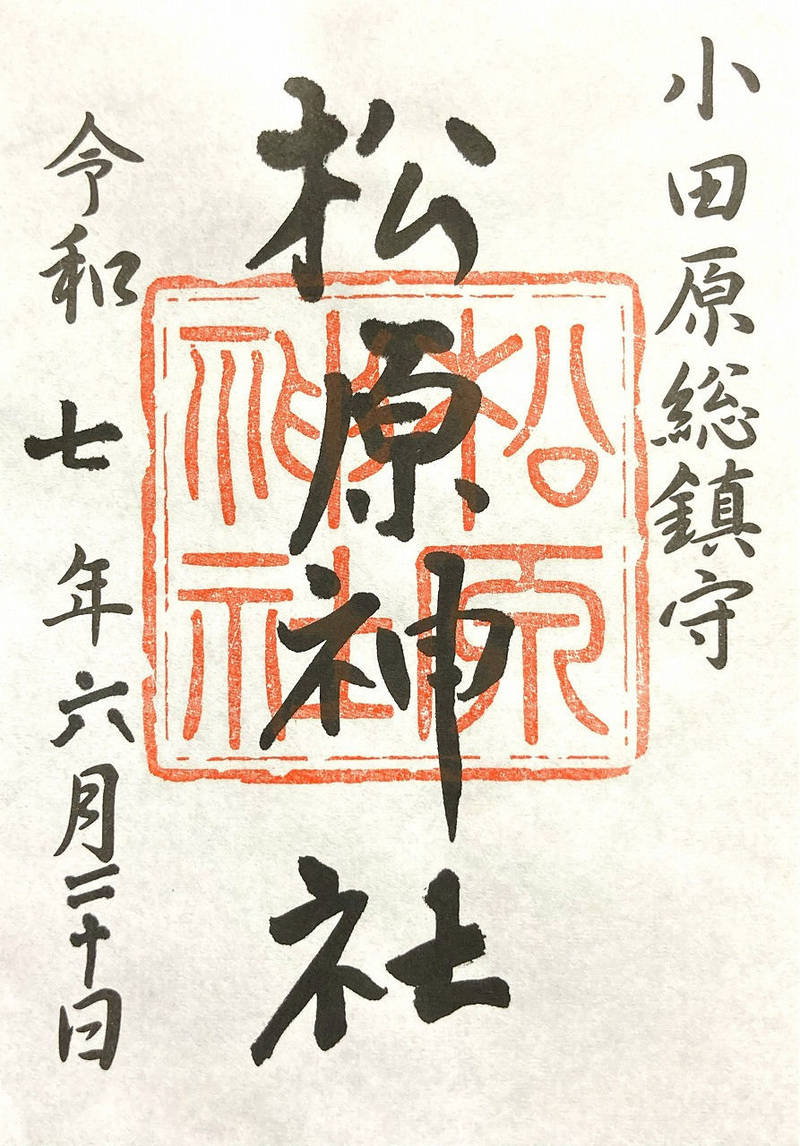 小田原総鎮守
松原神社
松原神社
令和七年六月二十日